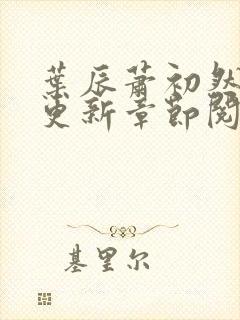 葉辰蕭初然
更新章節閱
基里尔